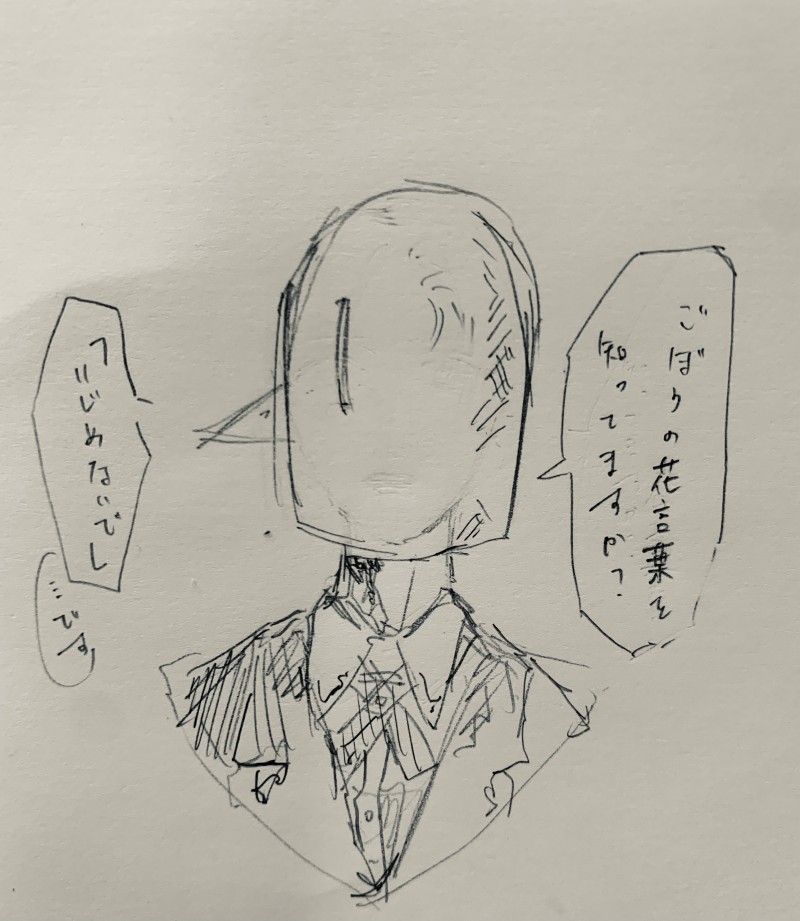 ごぼうの花言葉を
知ってますか？
「いじめないで」
…です